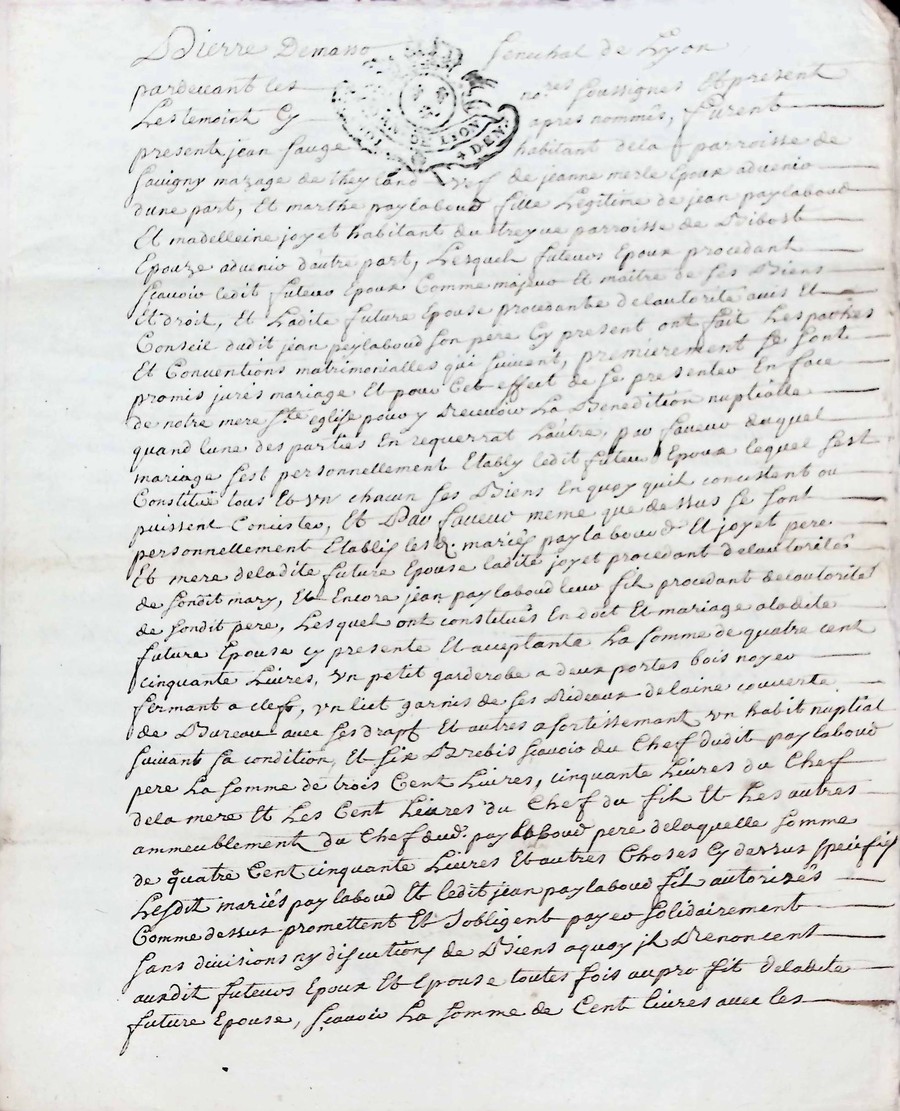 Pierre Demasso Senechal de Lyon
pardevant les no.res soussignes Et present
Les temoint Cy apres nommés, furent
present jean sauge habitant dela parroisse de
savigny mazage de theyland vef de jeanne merle Epoux advenir
dune part, Et marthe paylaboud fille Legitime de jean paylaboud
Et madelleine joyet habitant du treyve parroisse de Bibost
Epouze advenir dautre part, Lesquels futeurs Epoux procedant
sçavoir ledit futeur Epoux Comme majeur Et maitre de ses Biens
Et Droit, Et Ladite future Epouse procedante delautorité avis Et
Conseil dudit jean peylaboud son pere Cy present ont fait Les paches
Et Conventions matrimonialles qui suivent, premierement se sont
promis jurés mariage Et pour Cet effect de se presenter En face
de notre mere ste eglise pour y Recevoir La Benedition nuptialle
quand lune des parties En requerrat Lautre, par faveur duquel
mariage sest personnellement Etably ledit futeur Epoux lequel sest
Constitué tous Et un chacun ses Biens En quoy quil concistent ou
puissent Concister, Et Par faveur meme que dessus se sont
personnellement Etablis les d. mariés paylaboud Et joyet pere
Et mere deladite future Epouse ladite joyet procedant delautorité
de sondit mary, Et Encore jean paylaboud leur fils procedant delautorité
de sondit pere, Lesquels ont constitués En dot Et mariage aladite
future Epouse cy presente Et acceptante La somme de quatre cent
cinquante Livres, un petit garderobe a deux portes bois noyer
fermant a clefs, un liet garnis de ses Rideaux delaine couverte
de Bureau avec ses draps Et autres asortissement un habit nuptial
suivant sa condition, Et six Brebis sçavoir du Chef dudit paylaboud
pere La somme de trois Cent Livres, cinquante Livres du Chef
dela mere Et Les Cent Livres du Chef du fils Et Les autres
ammeublement du Chef dud. paylaboud pere delaquelle somme
de quatre Cent cinquante Livres Et autres Choses Cy dessus specifies
Lesdit mariés paylaboud Et ledit jean paylaboud fils autorizés
Comme dessus promettent Et sobligent payer solidairement
sans divisions ny discutions de Biens aquoy ils Renoncent
auxdit futeurs Epoux Et Epouse toutes fois au pro fit deladite
future Epouse, sçavoir La somme de Cent livres avec les